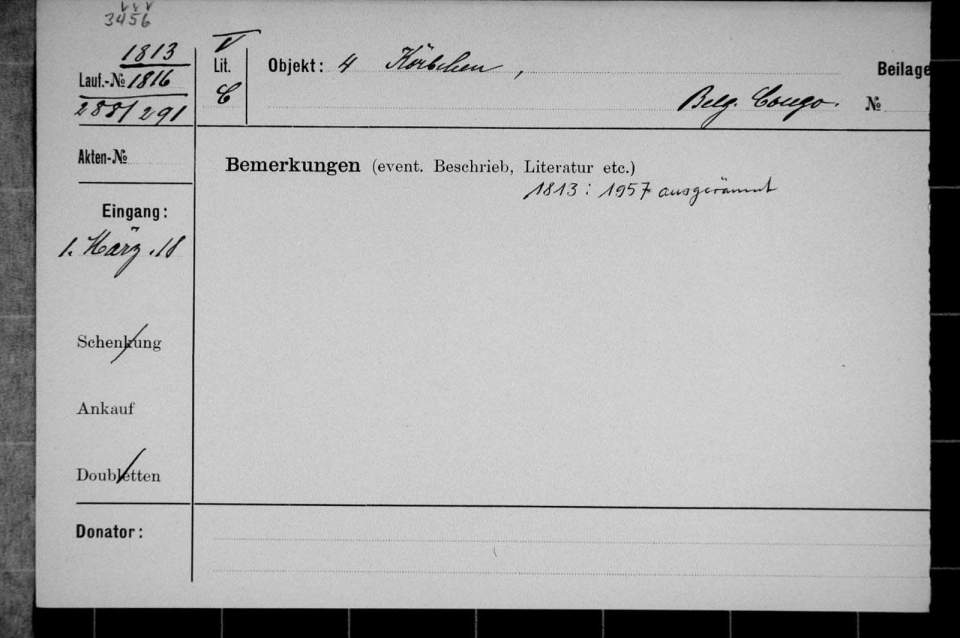 3456
1813
Lauf.-№ 1816
288/291
V
Lit.
C
Objekt: 4 Körbchen,
Belg. Congo.
Beilage
№
Akten-№
Bemerkungen (event. Beschrieb, Literatur etc.)
1813: 1957 ausgeräumt
Eingang:
1. März .18
Schenkung
Ankauf
Doubletten
Donator: